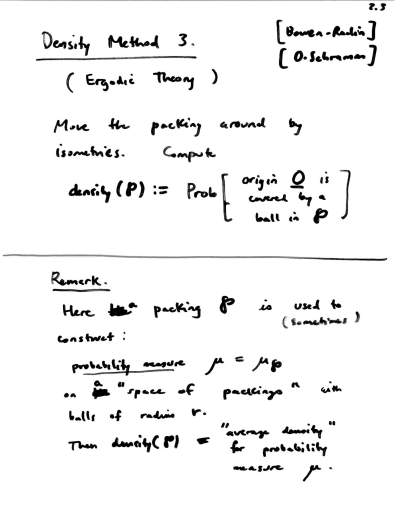 2.3
Density Method 3.
[Bowen-Radin]
[O. Schramm]
( Ergodic Theory )
Move the packing around by
isometries. Compute
density (P) := Prob [ origin O is
covered by a
ball in P ]
Remark.
Here a packing P is used to
(sometimes)
construct:
probability measure μ = μP
on a "space of packings" with
balls of radius r.
Then density(P) = "average density"
for probability
measure μ.